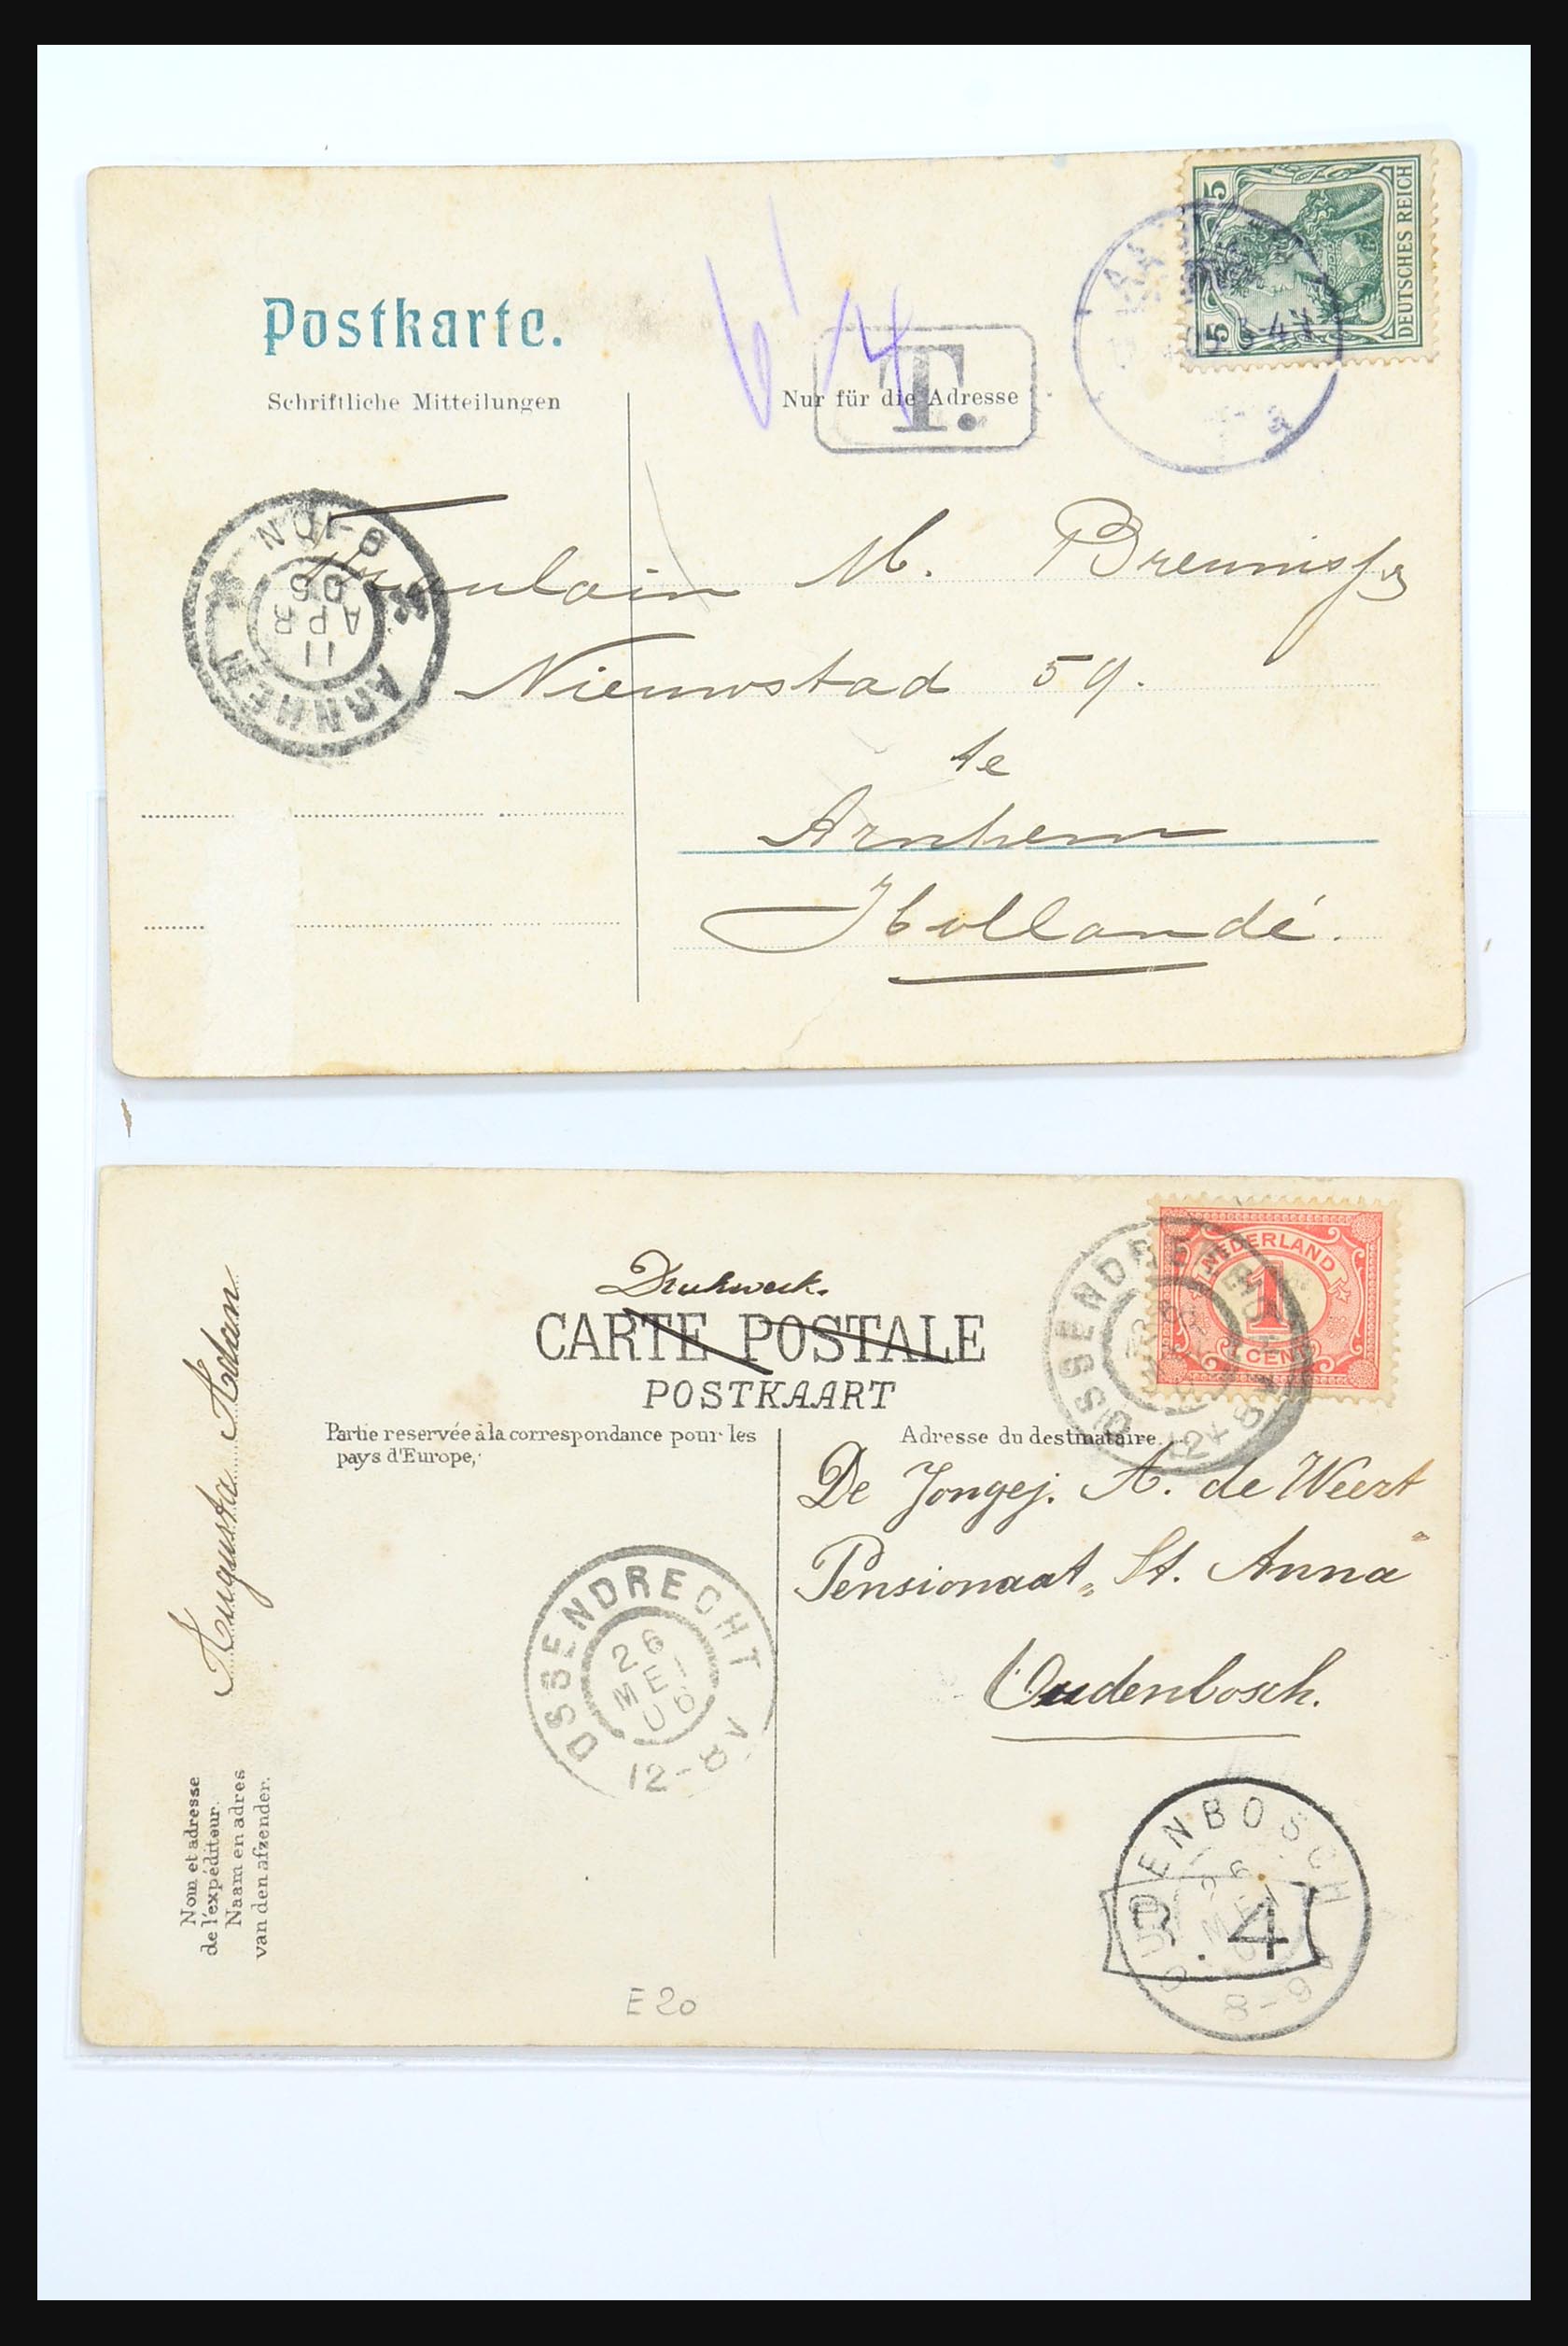 Postkarte.
Schriftliche Mitteilungen
Nur für die Adresse
T.
5 5
DEUTSCHES REICH
ARNHEM
11
APR
05
Fraulain M.
Nieuwstad 59.
te
Arnhem
Hollandé.
Drukwerk.
CARTE POSTALE
POSTKAART
Partie reservée à la correspondance pour les
pays d'Europe,
Adresse du destinataire.
NEDERLAND
1
CENT
OSSENDRECHT
12-8V
De Jongej. A. de Weert
Pensionaat „St. Anna"
Oudenbosch.
Augusta Adan
Nom et adresse
de l'expéditeur.
Naam en adres
van den afzender.
OSSENDRECHT
26
MEI
06
12-8V
OUDENBOSCH
26
MEI
8-9V
B. 4
E 20